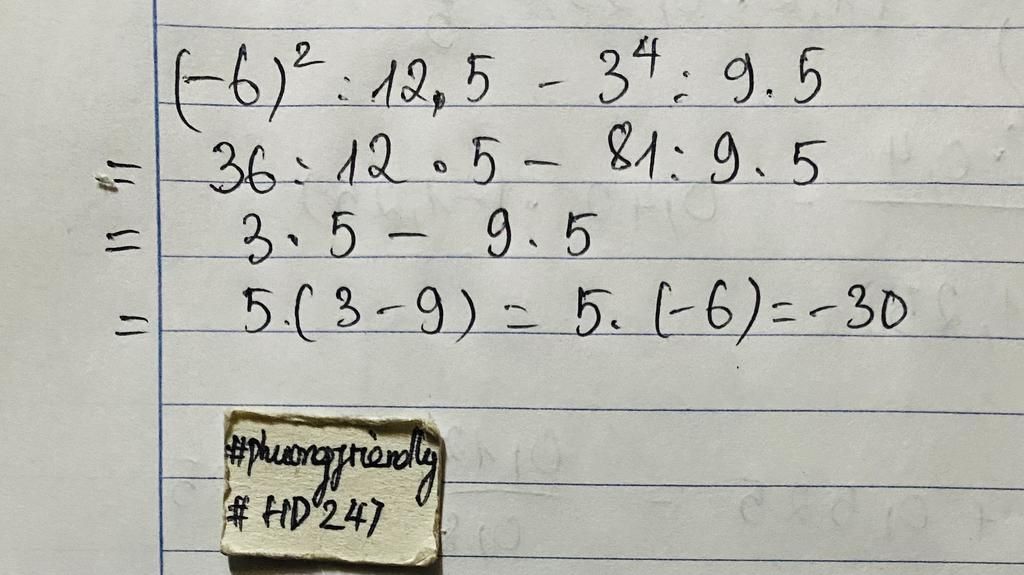 (-6)² : 12,5 - 3⁴ : 9.5
= 36 : 12 . 5 - 81 : 9 . 5
= 3 . 5 - 9 . 5
= 5.(3-9) = 5. (-6) = -30
#phuongfriendly
# HD 247